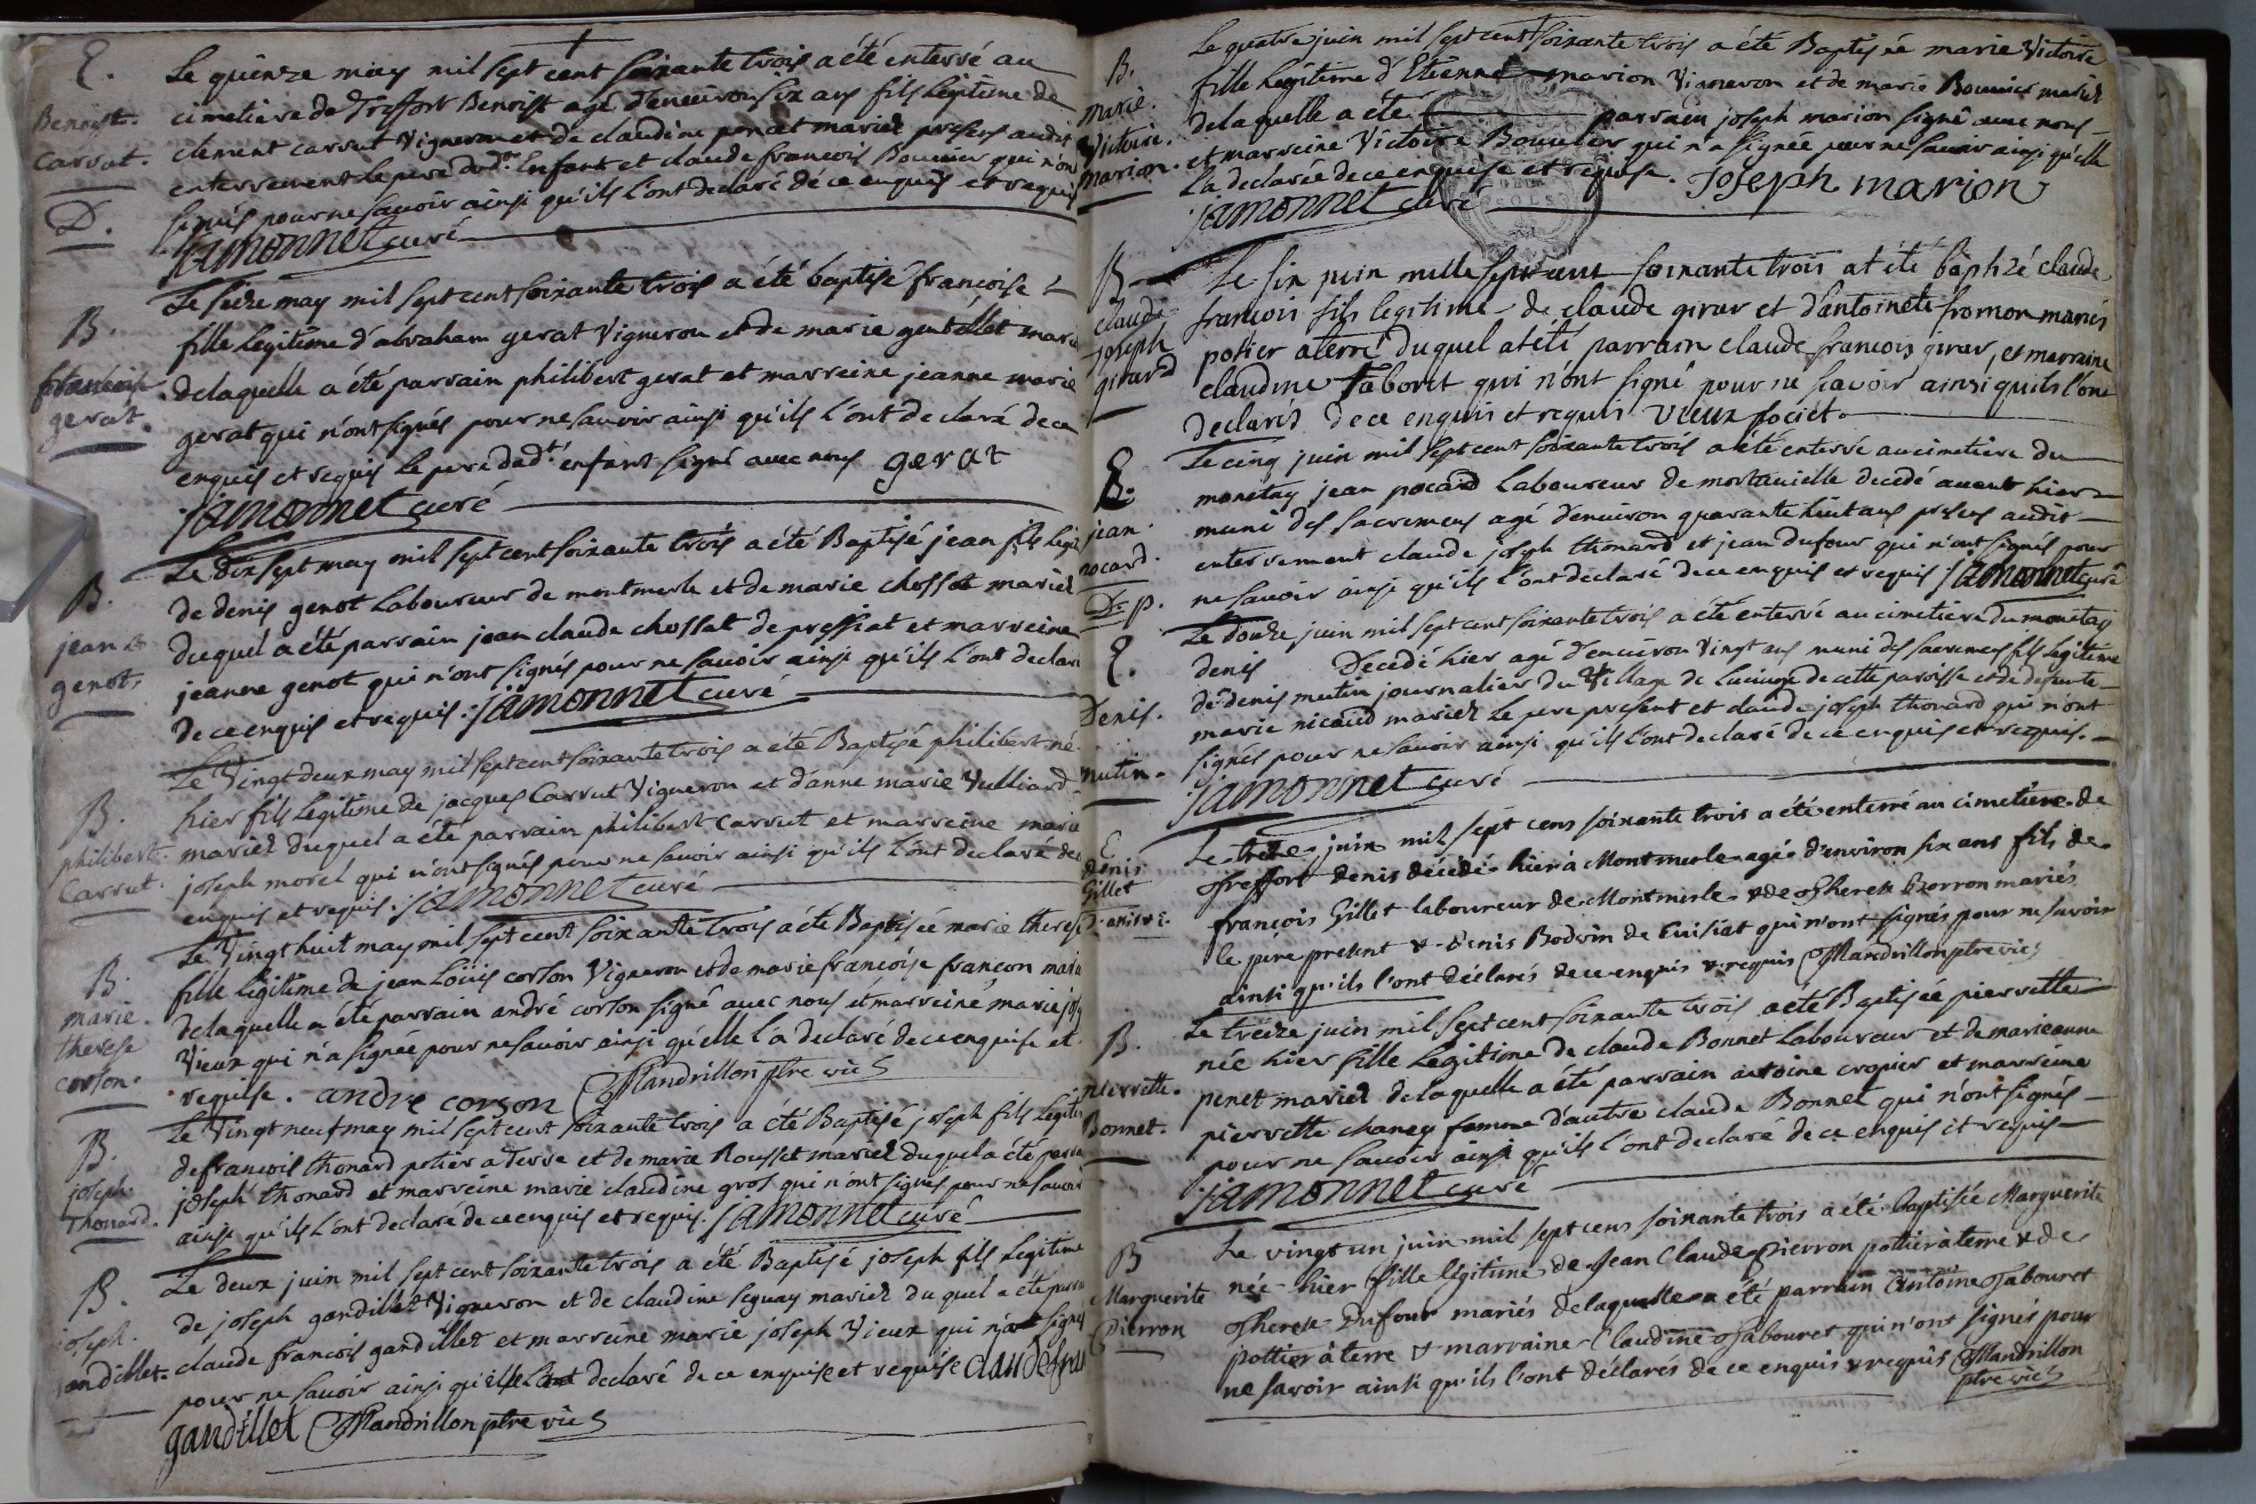 E.
Benoist.
Carrut.
D.
Le quinze may mil sept cent soixante trois a été enterré au
cimetiere de Treffort Benoist agé d'environ six ans fils legitime de
clement carrut Vigneron et de claudine poncet mariez presens audit
enterrement le pere dudt. Enfant et claude francois Bouvier qui n'ont
signés pour ne savoir ainsi qu'ils l'ont declaré de ce enquis et requis
jamonnet curé
B.
francoise
gerat.
Le seize may mil sept cent soixante trois a été baptisé francoise
fille legitime d'abraham gerat Vigneron et de marie gentillet mariez
delaquelle a été parrain philibert gerat et marreine jeanne marie
gerat qui n'ont signés pour ne savoir ainsi qu'ils l'ont declaré de ce
enquis et requis le pere dudt. enfant signé avec nous gerat
jamonnet curé
B.
jean
genot.
Le dix sept may mil sept cent soixante trois a été Baptisé jean fils legit
de denis genot Laboureur de montmerle et de marie chossat mariez
duquel a été parrain jean claude chossat de pressiat et marreine
jeanne genot qui n'ont signés pour ne savoir ainsi qu'ils l'ont declaré
de ce enquis et requis. jamonnet curé
B.
philibert
Carrut.
Le Vingt deux may mil sept cent soixante trois a été Baptisé philibert né
hier fils legitime de jacques Carrut Vigneron et d'anne marie Vulliard
mariez duquel a été parrain philibert carrut et marreine marie
joseph morel qui n'ont signés pour ne savoir ainsi qu'ils l'ont declaré de ce
enquis et requis. jamonnet curé
B.
marie
therese
corson.
Le Vingt huit may mil sept cent soixante trois a été Baptisée marie therese
fille legitime de jean Loüis corson Vigneron et de marie francoise francon mariez
delaquelle a été parrain andré corson signé avec nous et marreine marie josep
Vieux qui n'a signée pour ne savoir ainsi qu'elle l'a declaré de ce enquise et
requise. andre corson Mandrillon ptre vic
B.
joseph
Thonard.
Le Vingt neuf may mil sept cent soixante trois a été Baptisé joseph fils legitim
de francois thonard potier a Terre et de marie Rousset mariez duquel a été parrain
joseph thonard et marreine marie claudine gros qui n'ont signés pour ne savoir
ainsi qu'ils l'ont declaré de ce enquis et requis. jamonnet curé
B.
joseph.
gandillet.
Le deux juin mil sept cent soixante trois a été Baptisé joseph fils legitime
de joseph gandillet Vigneron et de claudine seguay mariez du quel a été parrain
claude francois gandillet et marreine marie joseph Vieux qui n'a signé
pour ne savoir ainsi qu'elle l'a declaré de ce enquise et requise claude fran
gandillet Mandrillon ptre vic
B.
marie.
Victoire.
marion.
Le quatre juin mil sept cent soixante trois a été Baptisée marie Victoire
fille legitime d'Etienne marion Vigneron et de marie Bouvier mariez
delaquelle a été parrain joseph marion signé avec nous
et marreine Victoire Bouvier qui n'a signée pour ne savoir ainsi qu'elle
l'a declarée de ce enquise et requise. Joseph marion
jamonnet curé
B
claude
joseph
girard
Le six juin mille sept cent soixante trois at été baptizé claude
francois fils legitime de claude girar et d'antoinete fromon mariés
potier aterre duquel at été parrain claude francois girar, et marraine
claudine Taboret qui n'ont signé pour ne scavoir ainsi quils l'ont
declarés de ce enquis et requis vieux societ.
E.
jean.
pocard.
D. p.
Le cinq juin mil sept cent soixante trois a été enterré au cimetiere du
monetay jean pocard Laboureur de montanielle decedé avant hier
muni des sacremens agé d'environ quarante huit ans presens audit
enterrement claude joseph thonard et jean dufour qui n'ont signés pour
ne savoir ainsi qu'ils l'ont declaré de ce enquis et requis. jamonnet curé
E.
Denis.
mutin.
Le douze juin mil sept cent soixante trois a été enterré au cimetiere du monetay
denis Decedé hier agé d'environ Vingt ans muni des sacremens fils legitime
de denis mutin journalier du Village de Lucinge de cette paroisse et de defunte
marie nicaud mariez le pere present et claude joseph thonard qui n'ont
signés pour ne savoir ainsi qu'ils l'ont declaré de ce enquis et requis.
jamonnet curé
E
Denis
Gillet
Le treize juin mil sept cens soixante trois a été enterré au cimetiere de
Treffort Denis décédé hier à Montmerle agé d'environ six ans fils de
françois Gillet laboureur de Montmerle & de Therese Giorron mariés
le pere present & Denis Bodoin de Cuisiat qui n'ont signés pour ne savoir
ainsi qu'ils l'ont déclarés de ce enquis & requis Mandrillon ptre vic
B.
pierrette.
Bonnet.
Le treize juin mil sept cent soixante trois a été Baptisée pierrette
née hier fille legitime de claude Bonnet Laboureur et de marieanne
penet mariez delaquelle a été parrain antoine cropier et marreine
pierrette chaney femme d'autre claude Bonnet qui n'ont signés
pour ne savoir ainsi qu'ils l'ont declaré de ce enquis et requis
jamonnet curé
B
Marguerite
Pierron
Le vingt un juin mil sept cens soixante trois a été baptisée Marguerite
née hier fille légitime de Jean Claude Pierron pottier à terre & de
Therese Dufour mariés delaquelle a été parrain Antoine Tabouret
pottier à terre & marraine Claudine Tabouret qui n'ont signés pour
ne savoir ainsi qu'ils l'ont déclarés de ce enquis & requis Mandrillon
ptre vic